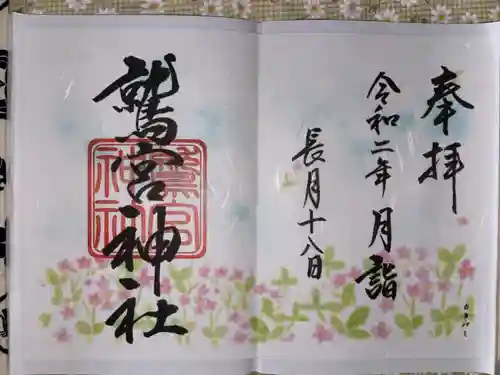 奉拝
令和二年 月詣
長月十八日
鷲宮神社
鷲宮
神社